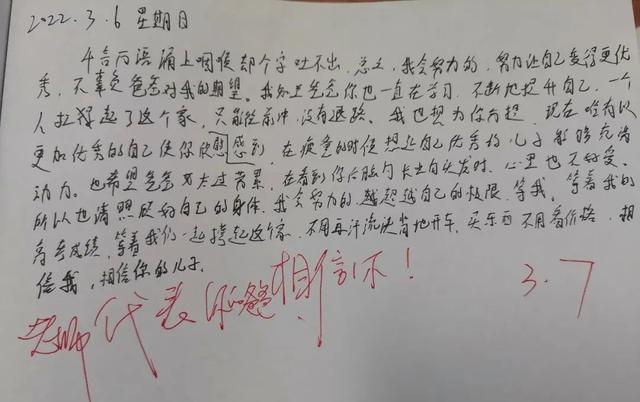 2022.3.6 星期日
千言万语涌上咽喉却一个字吐不出，总之，我会努力的，努力让自己变得更优
秀，不辜负爸爸对我的期望。我知道爸爸你也一直在学习，不断地提升自己，一个
人扛撑起了这个家，只能往前冲，没有退路。我也想为你分担，现在唯有以
更加优秀的自己使你欣慰感到，在疲惫的时候想起自己优秀的儿子能够充满
动力。也希望爸爸不太过劳累，在看到你的脸与长出白头发时，心里也不好受。
所以也请照顾好自己的身体，我会努力的，越超越自己的极限，等我，等着我的
高考成绩，等着我们一起撑起这个家，不用再汗流浃背地开车，买东西不用看价格，相
信我，相信你的儿子。
老师代表你爸爸相信你！
3.7